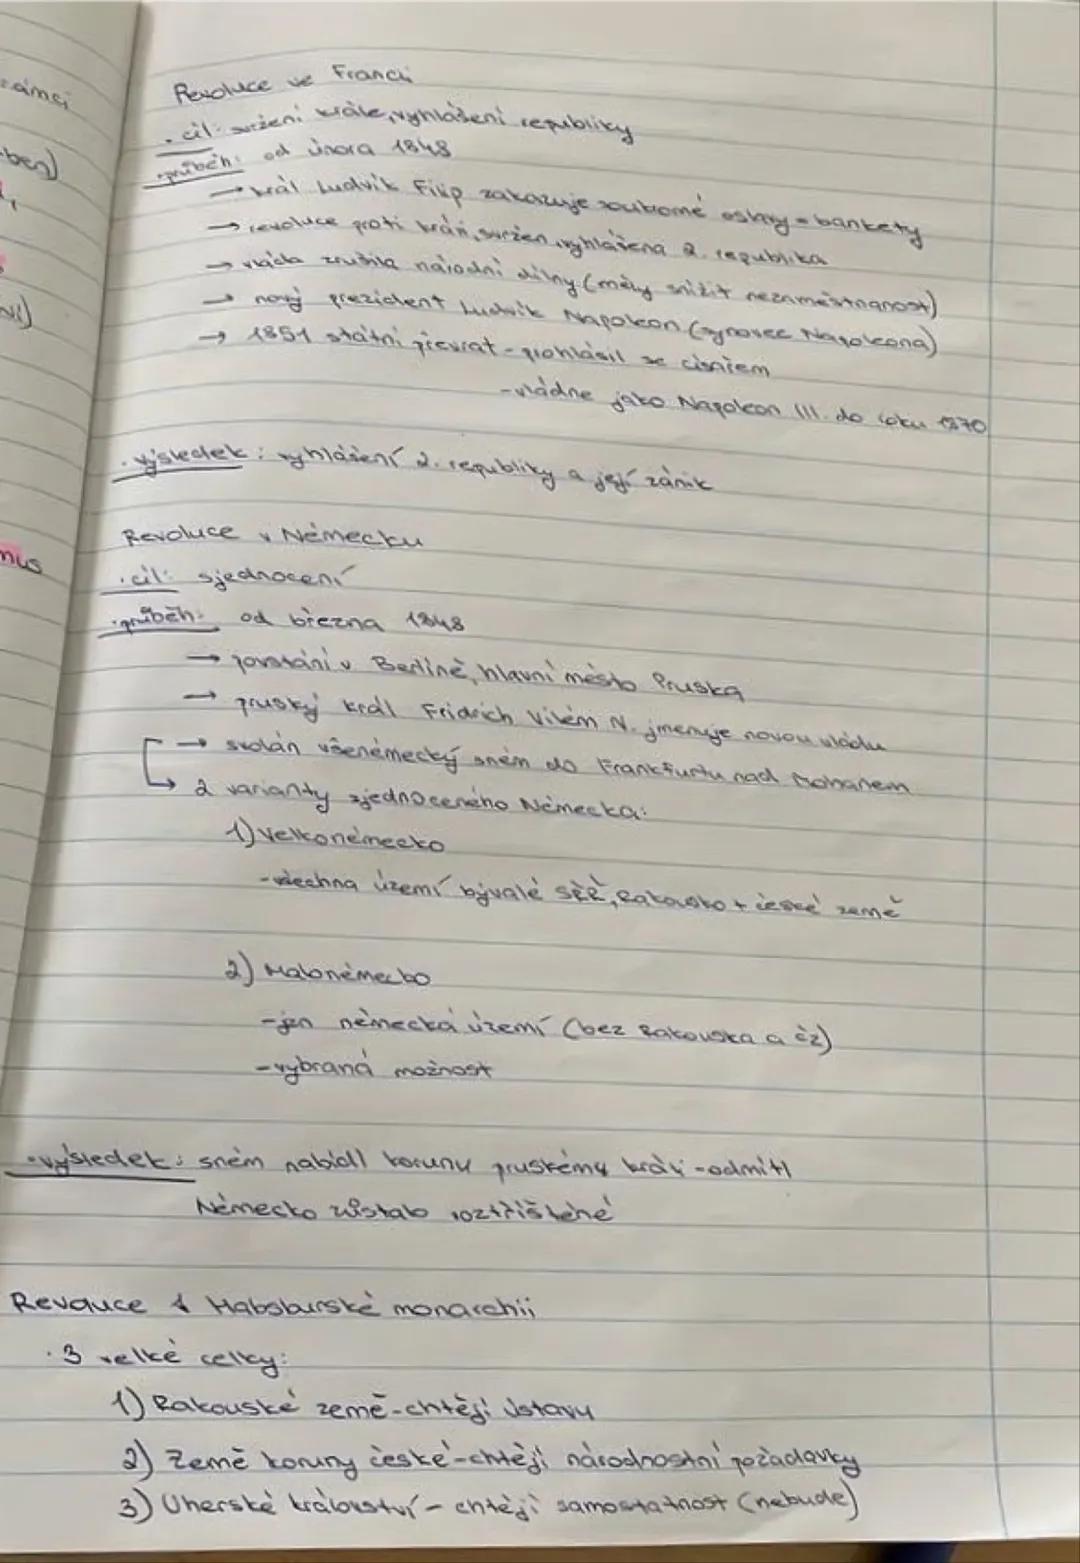 zámci
ben)
nus
Revoluce ve Francii
· cíl: svržení krále, vyhlášení republiky
· průběh: od února 1848
→ král Ludvík Filip zakazuje soukromé oslavy = bankety
→ revoluce proti králi, svržen, vyhlášena 2. republika
→ vláda zrušila národní dílny (měly snížit nezaměstnanost)
→ nový prezident Ludvík Napoleon (synovec Napoleona)
→ 1851 státní převrat - prohlásil se císařem
- vládne jako Napoleon III. do roku 1870
· výsledek: vyhlášení 2. republiky a její zánik
Revoluce v Německu
· cíl: sjednocení
· průběh: od března 1848
→ povstání v Berlíně, hlavní město Pruska
→ pruský král Fridrich Vilém IV. jmenuje novou vládu
→ svolán všeněmecký sněm do Frankfurtu nad Mohanem
↳ 2 varianty sjednoceného Německa:
1) Velkoněmecko
- všechna území bývalé SŘŘ, Rakousko + české země
2) Maloněmecko
- jen německá území (bez Rakouska a čz)
- vybraná možnost
· výsledek: sněm nabídl korunu pruskému králi - odmítl
Německo zůstalo roztříštěné
Revouce v Habsburské monarchii
· 3 velké celky:
1) Rakouské země - chtějí ústavu
2) Země koruny české - chtějí národnostní požadavky
3) Uherské království - chtějí samostatnost (nebude)